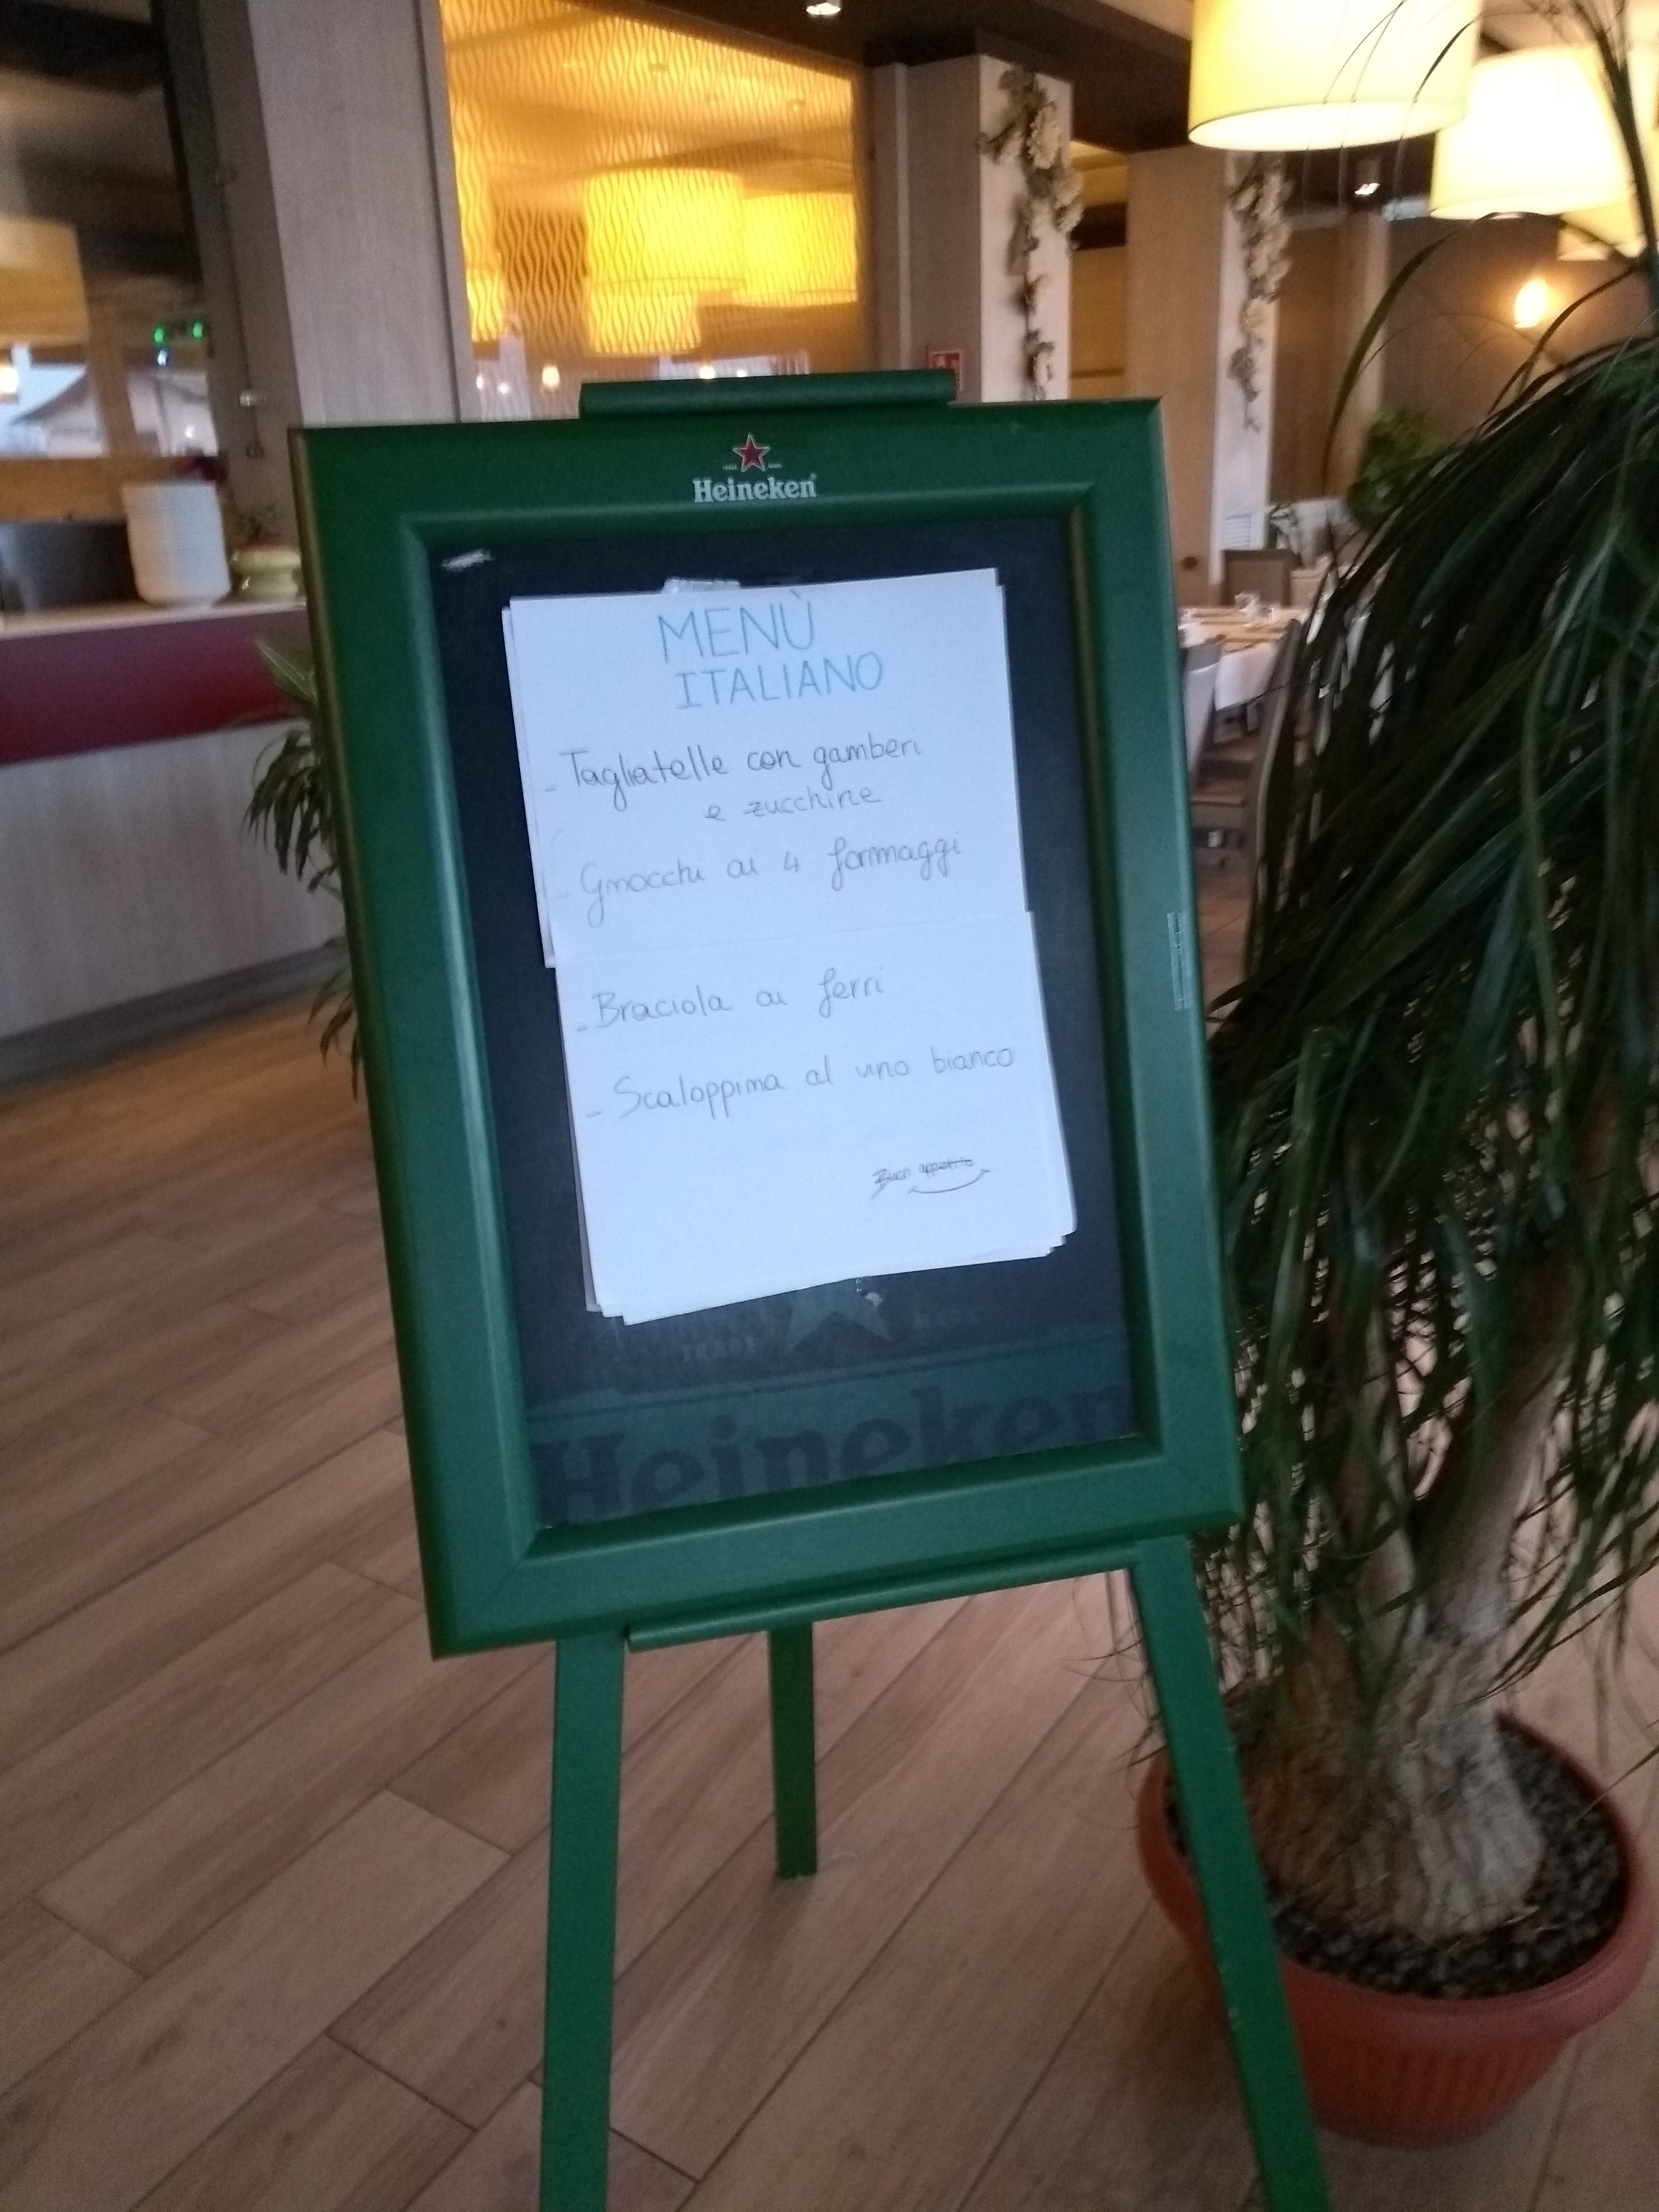 Heineken
MENÙ
ITALIANO
- Tagliatelle con gamberi
e zucchine
- Gnocchi ai 4 formaggi
- Braciola ai ferri
- Scaloppina al vino bianco
Buon appetito
TRADE MARK
Heineken